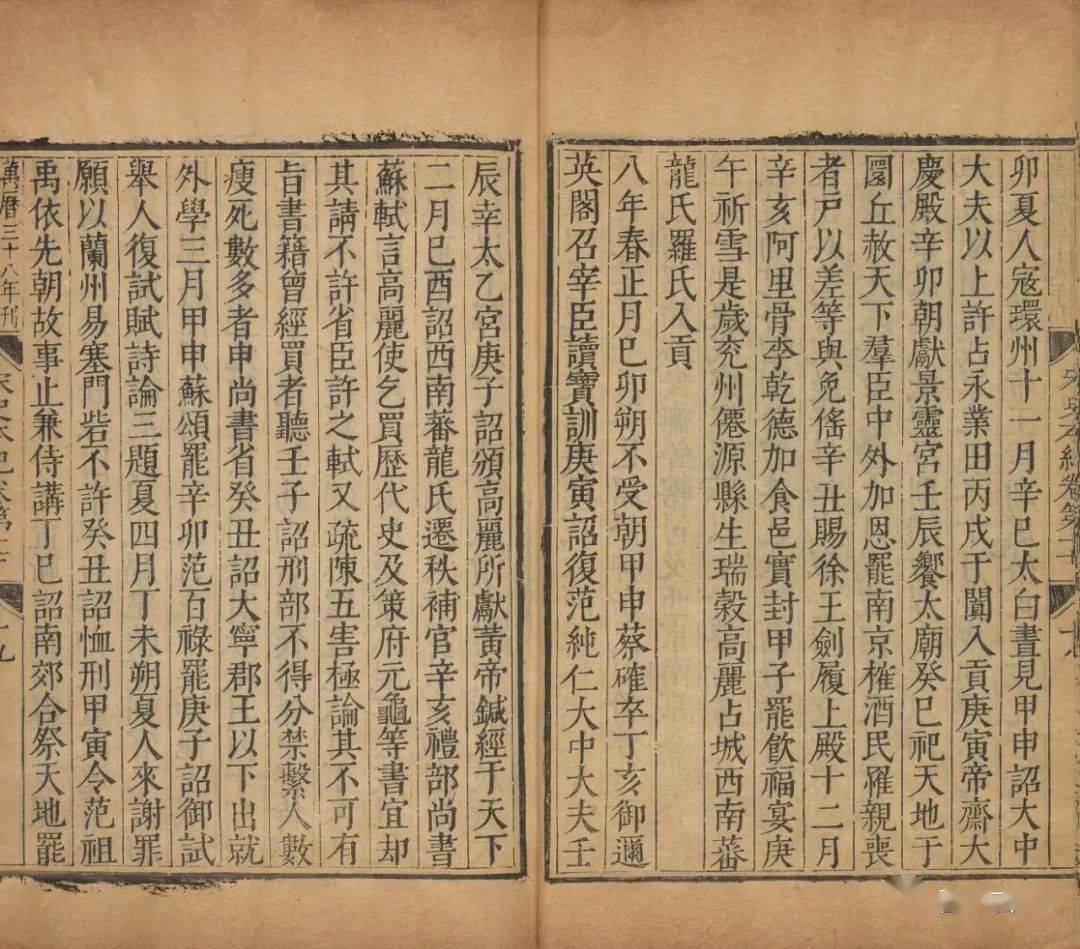 卯夏人寇環州十一月辛巳太白晝見甲申詔大中
大夫以上許占永業田丙戌于闐入貢庚寅帝齋大
慶殿辛卯朝獻景靈宮壬辰饗太廟癸巳祀天地于
圜丘赦天下羣臣中外加恩罷南京榷酒民罹親喪
者戸以差等與免徭辛丑賜徐王劍履上殿十二月
辛亥阿里骨李乾德加食邑實封甲子罷飲福宴庚
午祈雪是歲兖州僊源縣生瑞穀高麗占城西南蕃
龍氏羅氏入貢
八年春正月巳卯朔不受朝甲申蔡確卒丁亥御邇
英閣召宰臣讀寶訓庚寅詔復范純仁大中大夫壬
辰幸太乙宮庚子詔頒高麗所獻黃帝鍼經于天下
二月巳酉詔西南蕃龍氏遷秩補官辛亥禮部尚書
蘇軾言高麗使乞買歷代史及策府元龜等書宜却
其請不許省臣許之軾又疏陳五害極論其不可有
旨書籍曾經買者聽壬子詔刑部不得分禁繫人數
瘦死數多者申尚書省癸丑詔大寧郡王以下出就
外學三月甲申蘇頌罷辛卯范百祿罷庚子詔御試
舉人復試賦詩論三題夏四月丁未朔夏人來謝罪
願以蘭州易塞門砦不許癸丑詔恤刑甲寅令范祖
禹依先朝故事止兼侍講丁巳詔南郊合祭天地罷
萬曆三十八年刊